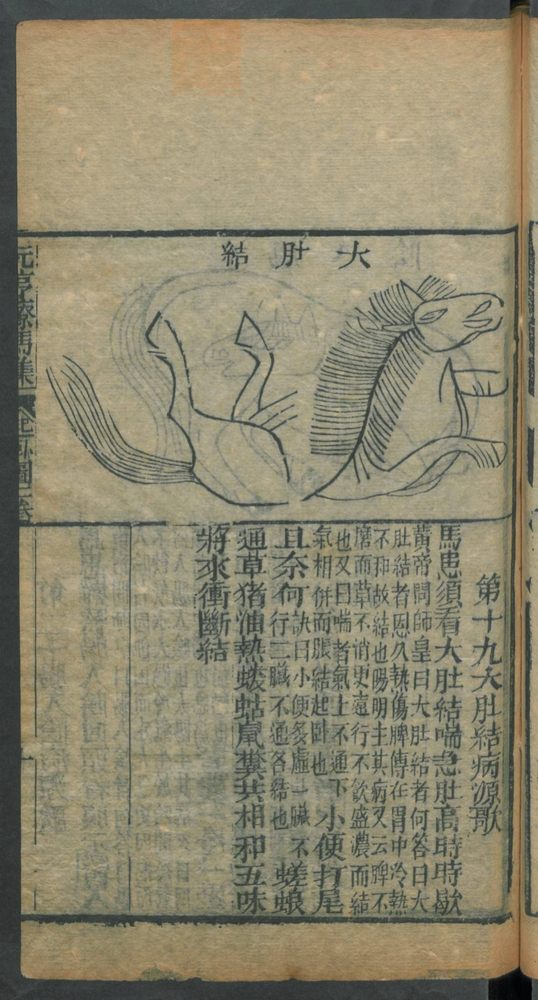 大肚結
第十九大肚結病源歌
馬患須看大肚結喘急肚高時時歇
黃帝問師皇曰大肚結者何答曰大
肚結者因久熱傷脾傳在胃中冷熱
不和故結也陽明主其病又云脾不
磨而草不消更遠行不飲盛濃而結
也又曰喘者氣上不通下
氣相併而脹結起卧也
小便打尾
且奈何
訣曰小便爻虛一臟不
行二臟不通各結也
蜣蜋
通草猪油熱螻蛄鼠糞共相和五味
將來衝斷結
元亨療馬集
卷